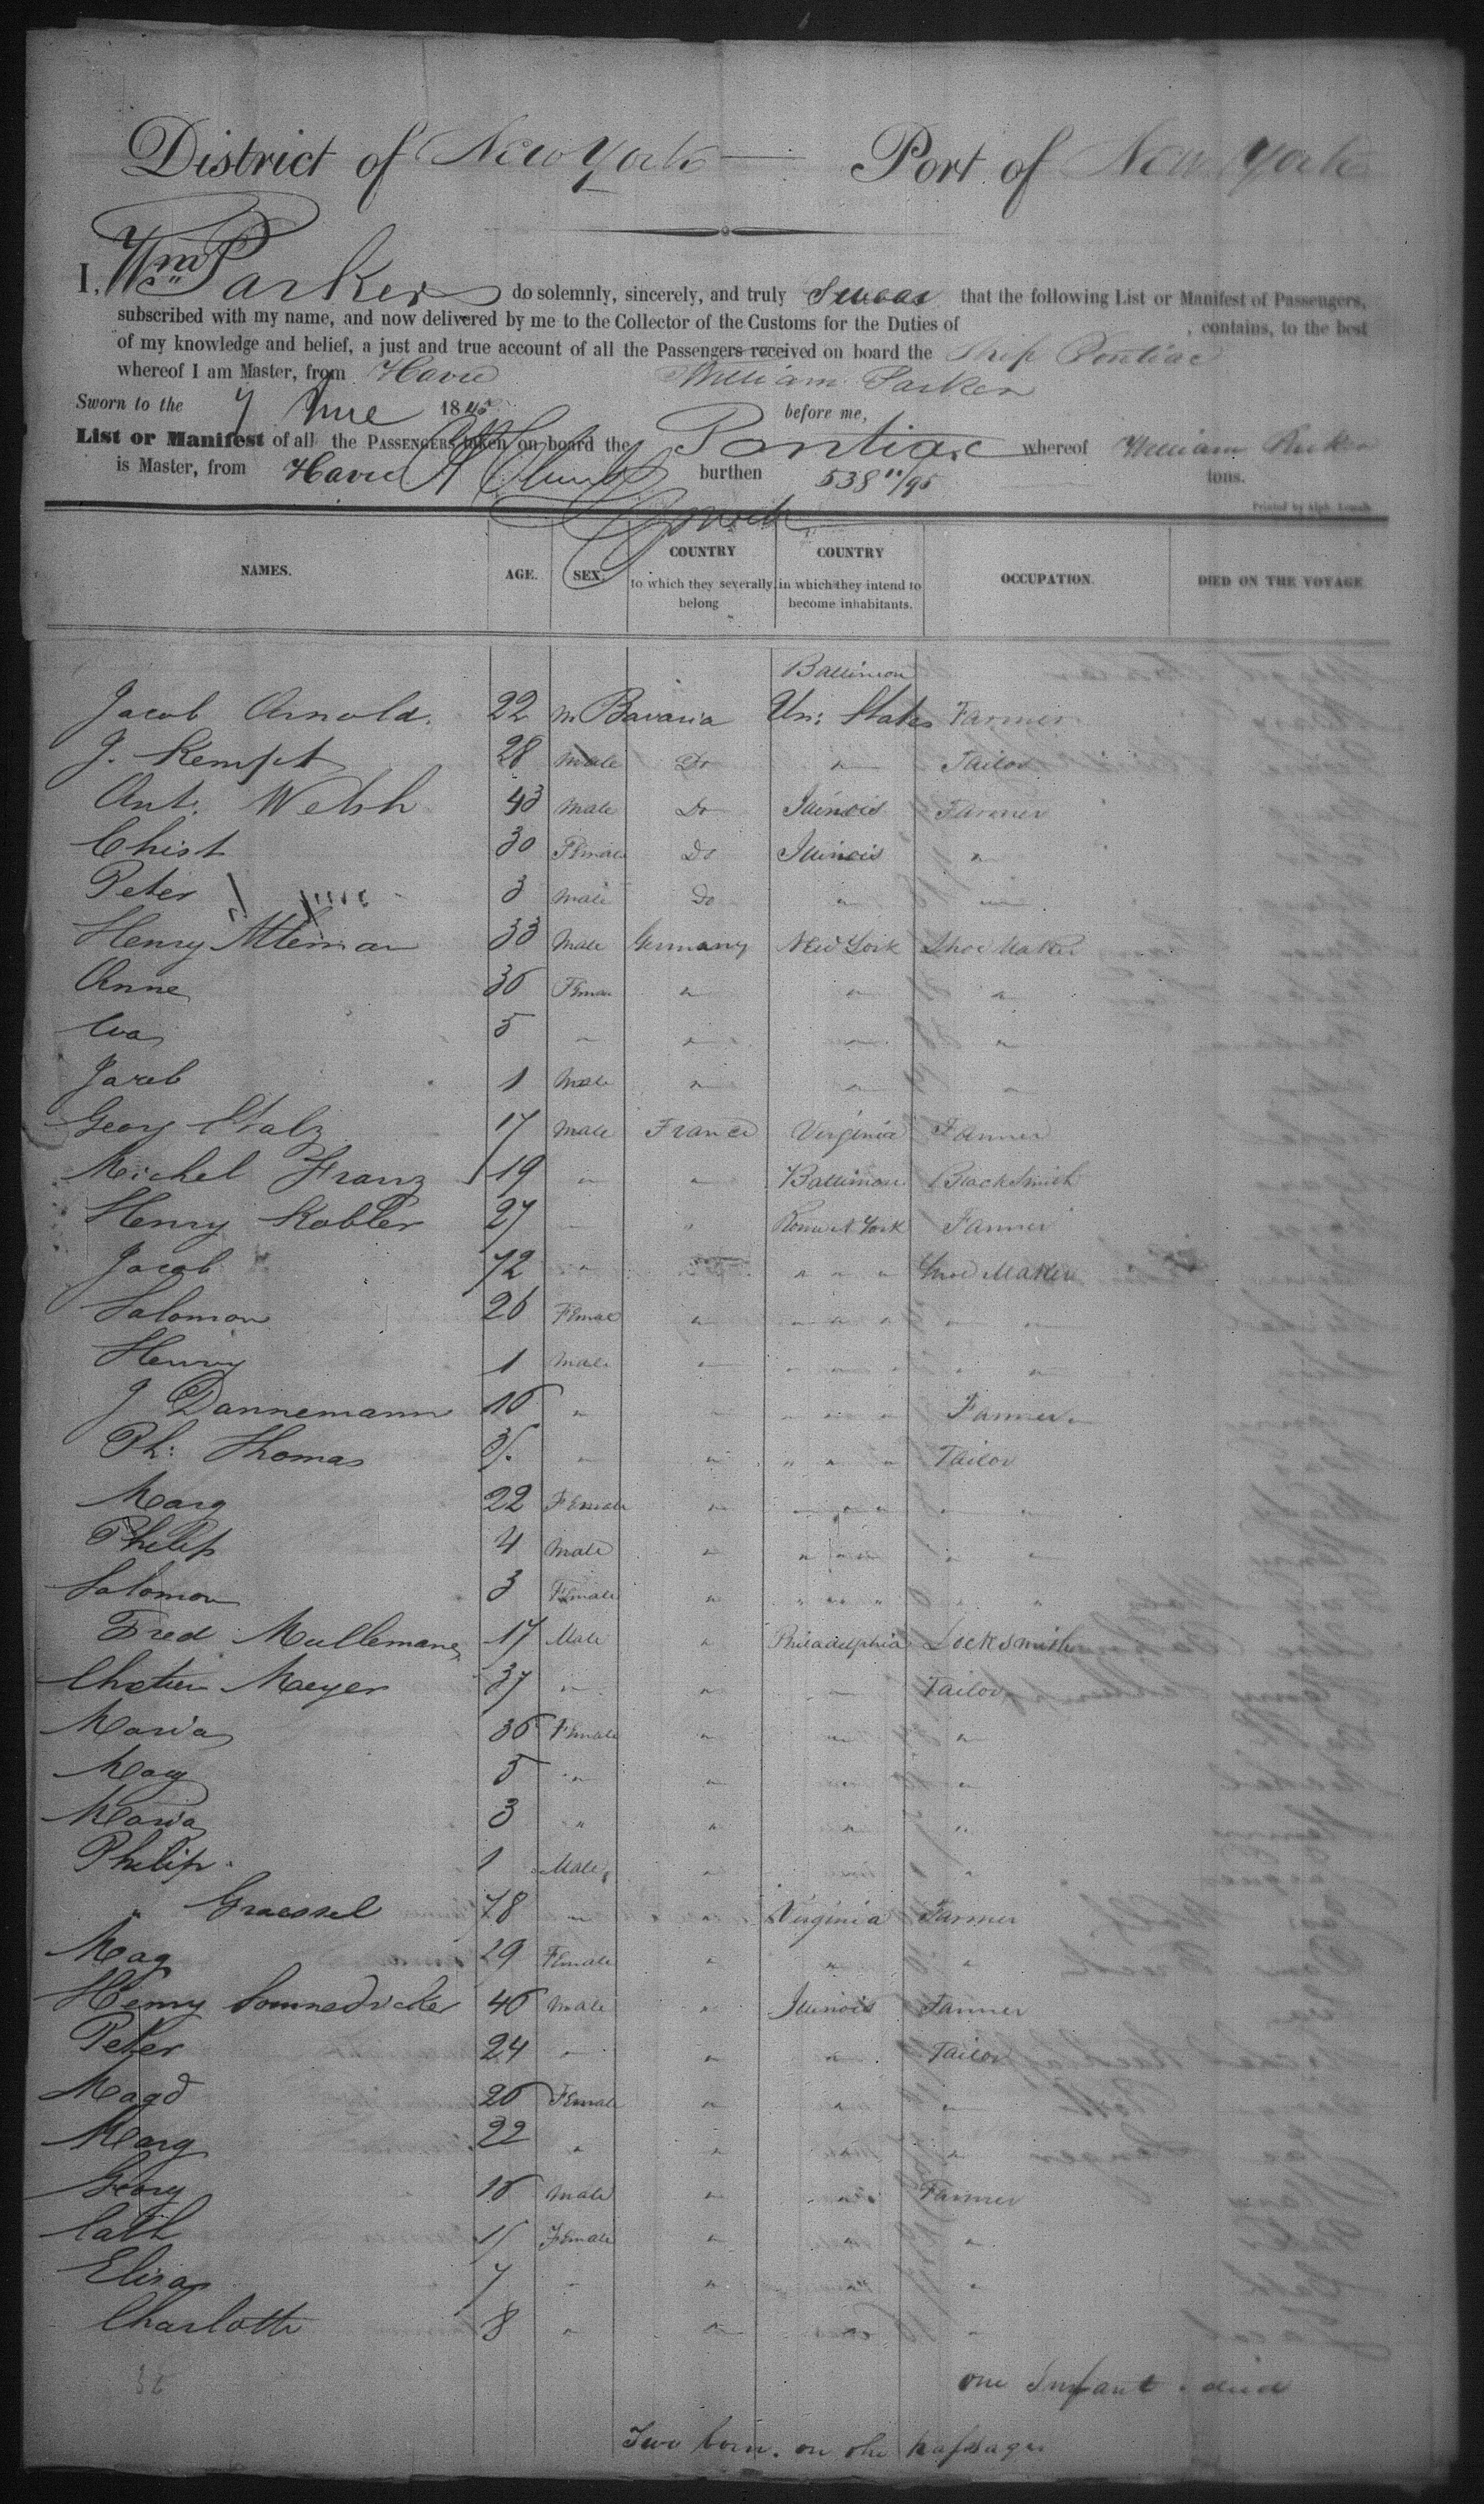 District of New York Port of New York
I, Wm Parker do solemnly, sincerely, and truly Swear that the following List or Manifest of Passengers,
subscribed with my name, and now delivered by me to the Collector of the Customs for the Duties of , contains, to the best
of my knowledge and belief, a just and true account of all the Passengers received on board the Ship Pontiac
whereof I am Master, from Havre William Parker
Sworn to the 7 June 1845 before me,
List or Manifest of all the PASSENGERS taken on board the Pontiac whereof William Parker
is Master, from Havre burthen 538 11/95 tons.
NAMES. AGE. SEX. COUNTRY to which they severally belong COUNTRY in which they intend to become inhabitants. OCCUPATION. DIED ON THE VOYAGE
Baltimore
Jacob Arnold. 22 m Bavaria Un: States Farmer
J. Kempt 28 Male Do " Tailor
Ant. Welsh 43 Male Do Illinois Farmer
Christ 30 Female Do Illinois "
Peter 3 Male Do " "
Henry Atleman 33 Male Germany New York Shoe Maker
Anne 36 Femae " " "
Eva 5 " " " "
Jacob 1 Male " " "
Georg Stalz 17 Male France Virginia Farmer
Michel Franz 19 " " Baltimore Black Smith
Henry Kobler 27 " " Rome N York Farmer
Jacob 72 " " " " " Shoe Maker
Salomon 26 Femae " " " " " "
Henry 1 Male " " " " " "
J Dannemann 16 " " " " " Farmer
Ph: Thomas 35 " " " " " Tailor
Marg 22 Female " " " " " "
Philip 4 Male " " " " " "
Salomon 3 Female " " " " " "
Fred Mullemann 17 Male " Philadelphia Locksmith
Meyer 37 " " " Tailor
Maria 36 Female " " "
Mary 5 " " " "
Maria 3 " " " "
Philip 1 Male " " "
" Graessel 78 " " Virginia Farmer
Mag 29 Female " " "
Henry 46 Male " Illinois Farmer
Peter 24 " " " Tailor
Magd 26 Female " " "
Marg 22 " " " "
Georg 16 Male " " Farmer
Cath 15 Female " " "
Eliza 7 " " " "
Charlotte 8 " " " "
36 one Infant died
Two born on the passage